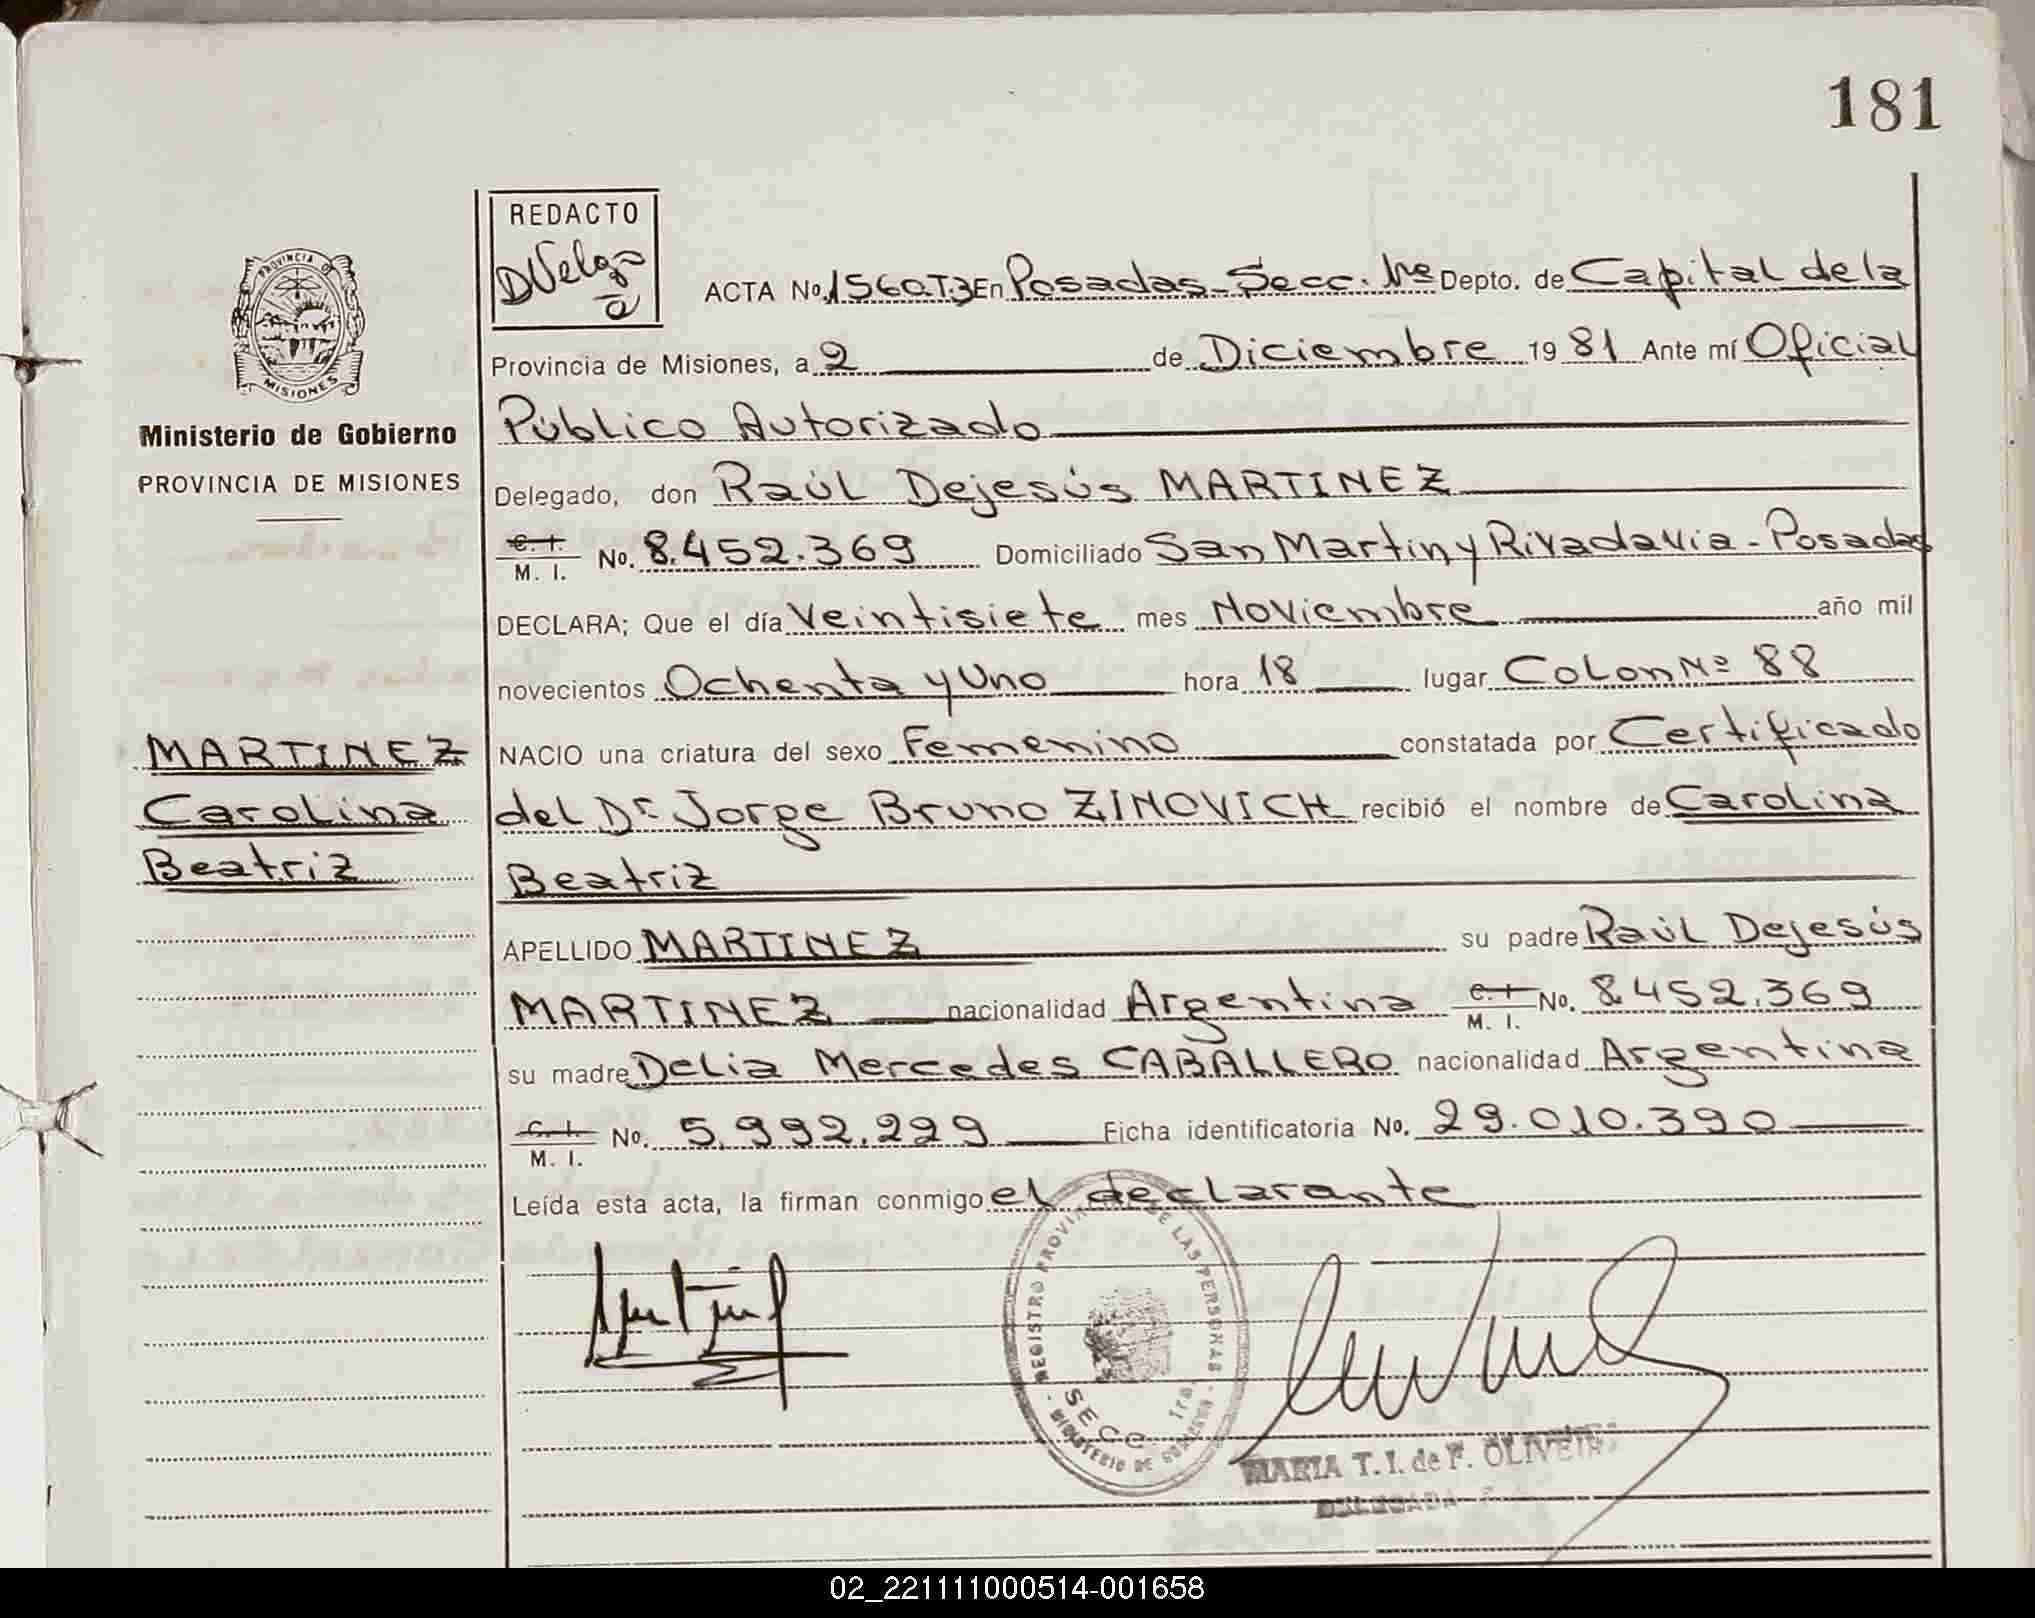 181
REDACTO
DVelaz
PROVINCIA DE
MISIONES
Ministerio de Gobierno
PROVINCIA DE MISIONES
ACTA No. 1560.T.3 En Posadas - Secc. 1ra Depto. de Capital de la
Provincia de Misiones, a 2 de Diciembre 19 81 Ante mí Oficial
Público Autorizado
Delegado, don Raúl Dejesús MARTINEZ
C. I.
M. I. No. 8.452.369 Domiciliado San Martin y Rivadavia - Posadas
DECLARA; Que el día Veintisiete mes Noviembre año mil
novecientos Ochenta y Uno hora 18 lugar Colon Nº 88
MARTINEZ
Carolina
Beatriz
NACIO una criatura del sexo Femenino constatada por Certificado
del Dr. Jorge Bruno ZINOVICH recibió el nombre de Carolina
Beatriz
APELLIDO MARTINEZ su padre Raúl Dejesús
MARTINEZ nacionalidad Argentina C. I. M. I. No. 8.452.369
su madre Delia Mercedes CABALLERO nacionalidad Argentina
C. I.
M. I. No. 5.992.229 Ficha identificatoria No. 29.010.390
Leída esta acta, la firman conmigo el declarante
REGISTRO PROVINCIAL DE LAS PERSONAS
SECC. 1ra.
MINISTERIO DE GOBIERNO
MARIA T. I. de F. OLIVEIRA
DELEGADA
02_221111000514-001658